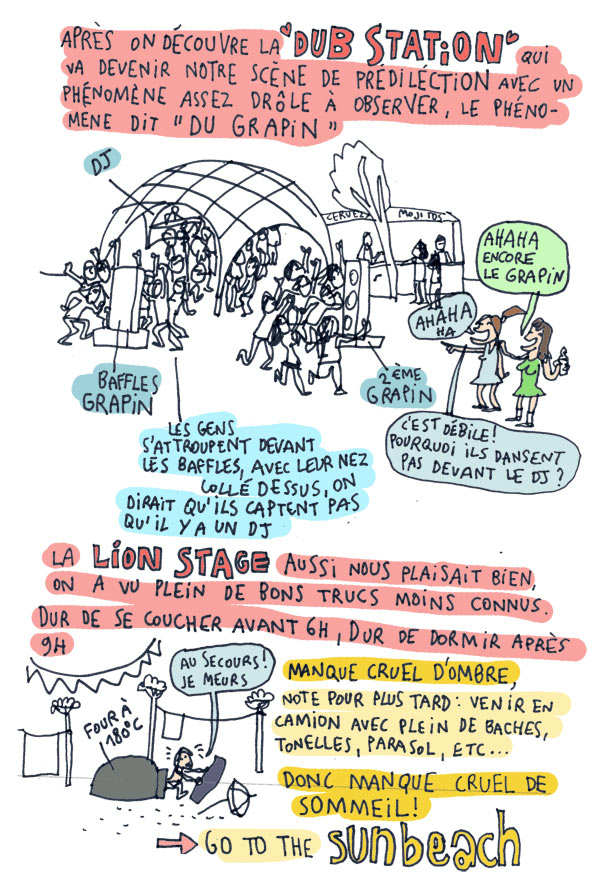 APRÈS ON DÉCOUVRE LA "DUB STATION" QUI
VA DEVENIR NOTRE SCÈNE DE PRÉDILÉCTION AVEC UN
PHÉNOMÈNE ASSEZ DRÔLE À OBSERVER, LE PHÉNO-
MÈNE DIT "DU GRAPIN"
DJ
CERVEZ
MOJITOS
AHAHA
ENCORE
LE GRAPIN
AHAHA
HA
BAFFLES
GRAPIN
2ÈME
GRAPIN
C'EST DÉBILE!
POURQUOI ILS DANSENT
PAS DEVANT LE DJ?
LES GENS
S'ATTROUPENT DEVANT
LES BAFFLES, AVEC LEUR NEZ
COLLÉ DESSUS, ON
DIRAIT QU'ILS CAPTENT PAS
QU'IL Y A UN DJ
LA LION STAGE AUSSI NOUS PLAISAIT BIEN,
ON A VU PLEIN DE BONS TRUCS MOINS CONNUS.
DUR DE SE COUCHER AVANT 6H, DUR DE DORMIR APRÈS
9H
AU SECOURS!
JE MEURS
FOUR À
180°C
MANQUE CRUEL D'OMBRE,
NOTE POUR PLUS TARD: VENIR EN
CAMION AVEC PLEIN DE BACHES,
TONELLES, PARASOL, ETC...
DONC MANQUE CRUEL DE
SOMMEIL!
→ GO TO THE sunbeach